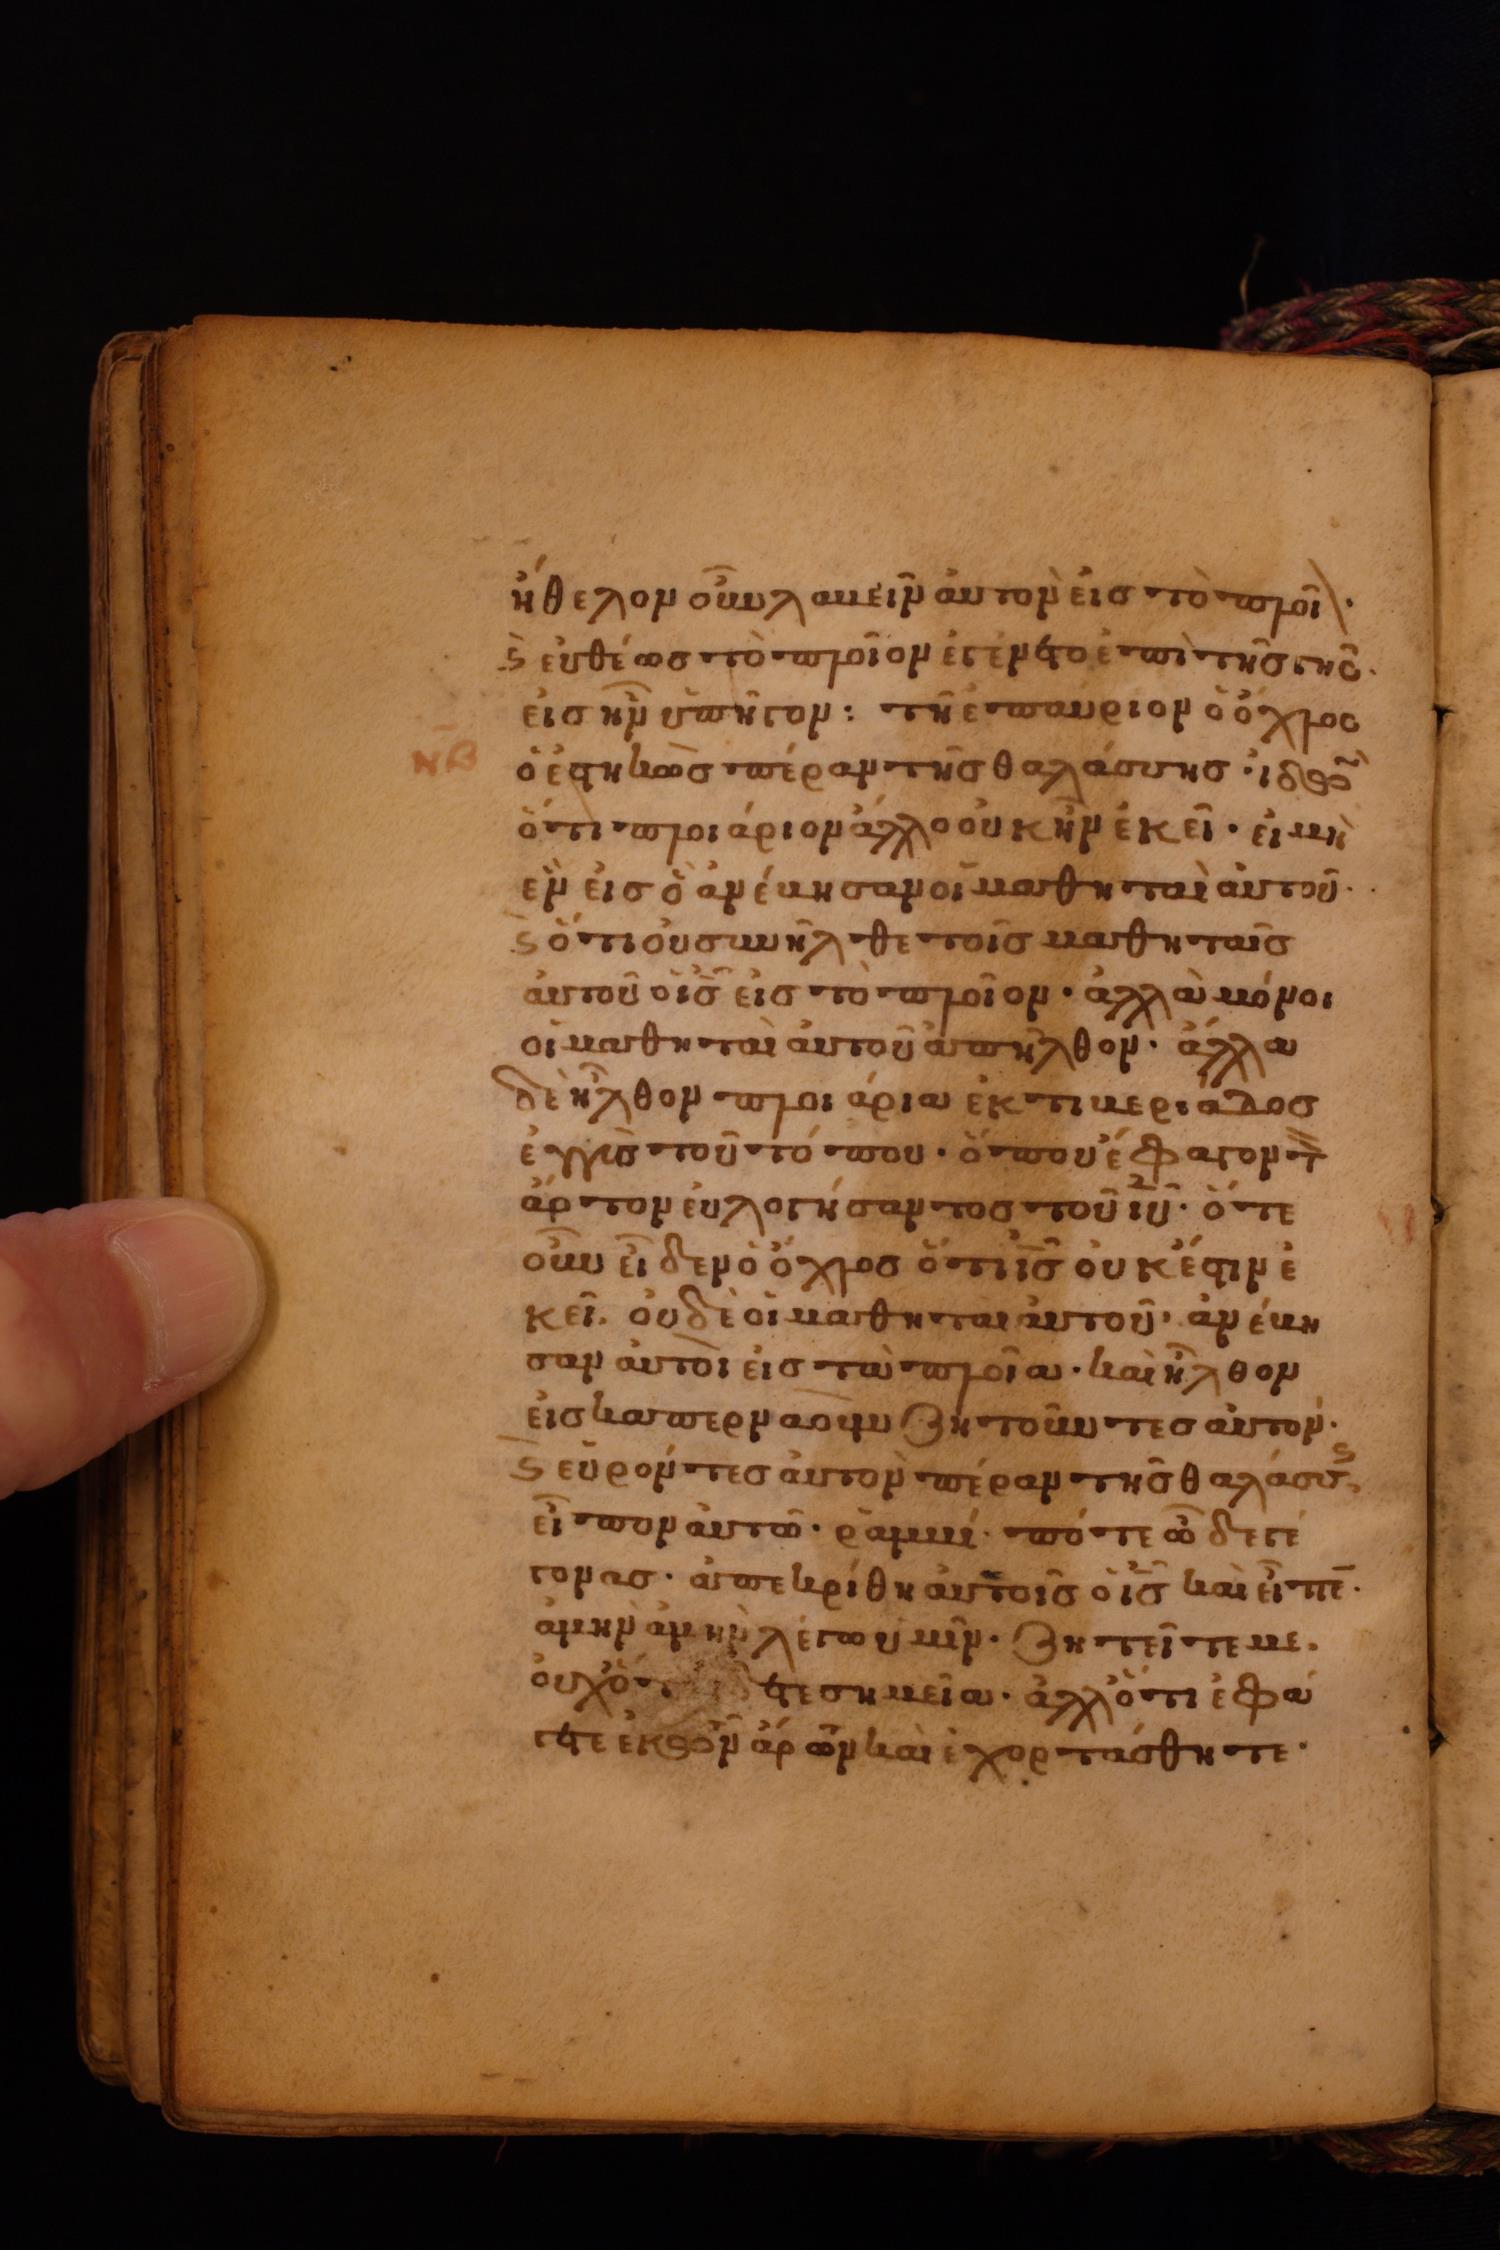 ἤθελον οὖν λαβεῖν ἀυτὸν ἐις τὸ πλοῖ\·
ϛ̀ ἐυθέως τὸ πλοῖον ἐγένετο ἐπὶ τῆς γῆς·
ἐις ἣν ὑπῆγον: τῆ ἐπαύριον ὁ ὄχλος
νβ
ὁ ἑστηκὼς πέραν τῆς θαλάσσης· ἰδὼν
ὅτι πλοιάριον ἄλλο οὐκ ἦν ἐκεῖ· ἐι μὴ
ἓν ἐις ὃ ἀνέβησαν οἱ μαθηταὶ ἀυτοῦ·
ϛ̀ ὅτι οὐ συνῆλθε τοῖς μαθηταῖς
ἀυτοῦ ὁ ις̅ ἐις τὸ πλοῖον· ἀλλὰ μόνοι
οἱ μαθηταὶ ἀυτοῦ ἀπῆλθον· ἄλλα
δὲ ἦλθον πλοιάρια ἐκ τιβεριάδος
ἐγγὺς τοῦ τόπου· ὅπου ἔφαγον τ
ἄρτον ἐυλογήσαντος τοῦ ιυ̅· ὅτε
οὖν εἶδεν ὁ ὄχλος ὅτι ις̅ οὐκ ἔστιν ἐ
κεῖ· οὐδὲ οἱ μαθηται ἀυτοῦ· ἀνέβη
σαν ἀυτοὶ ἐις τὰ πλοῖα· καὶ ἦλθον
ἐις καπερναοὺμ ζητοῦντες ἀυτόν·
ϛ ἑυρόντες ἀυτὸν πέραν τῆς θαλάσσς
εἶπον ἀυτῶ· ῥαββί· πότε ὧδε γέ
γονας· ἀπεκρίθη ἀυτοῖς ὁ ις̅ καὶ εἶπε̅·
ἀμὴν ἀμὴν λέγω ὑμῖν· ζητεῖτε με·
οὐχ ὅτ τε σημεῖα· ἀλλ ὅτι ἐφά
γετε ἐκ τῶν ἄρων καὶ ἐχορτάσθητε·